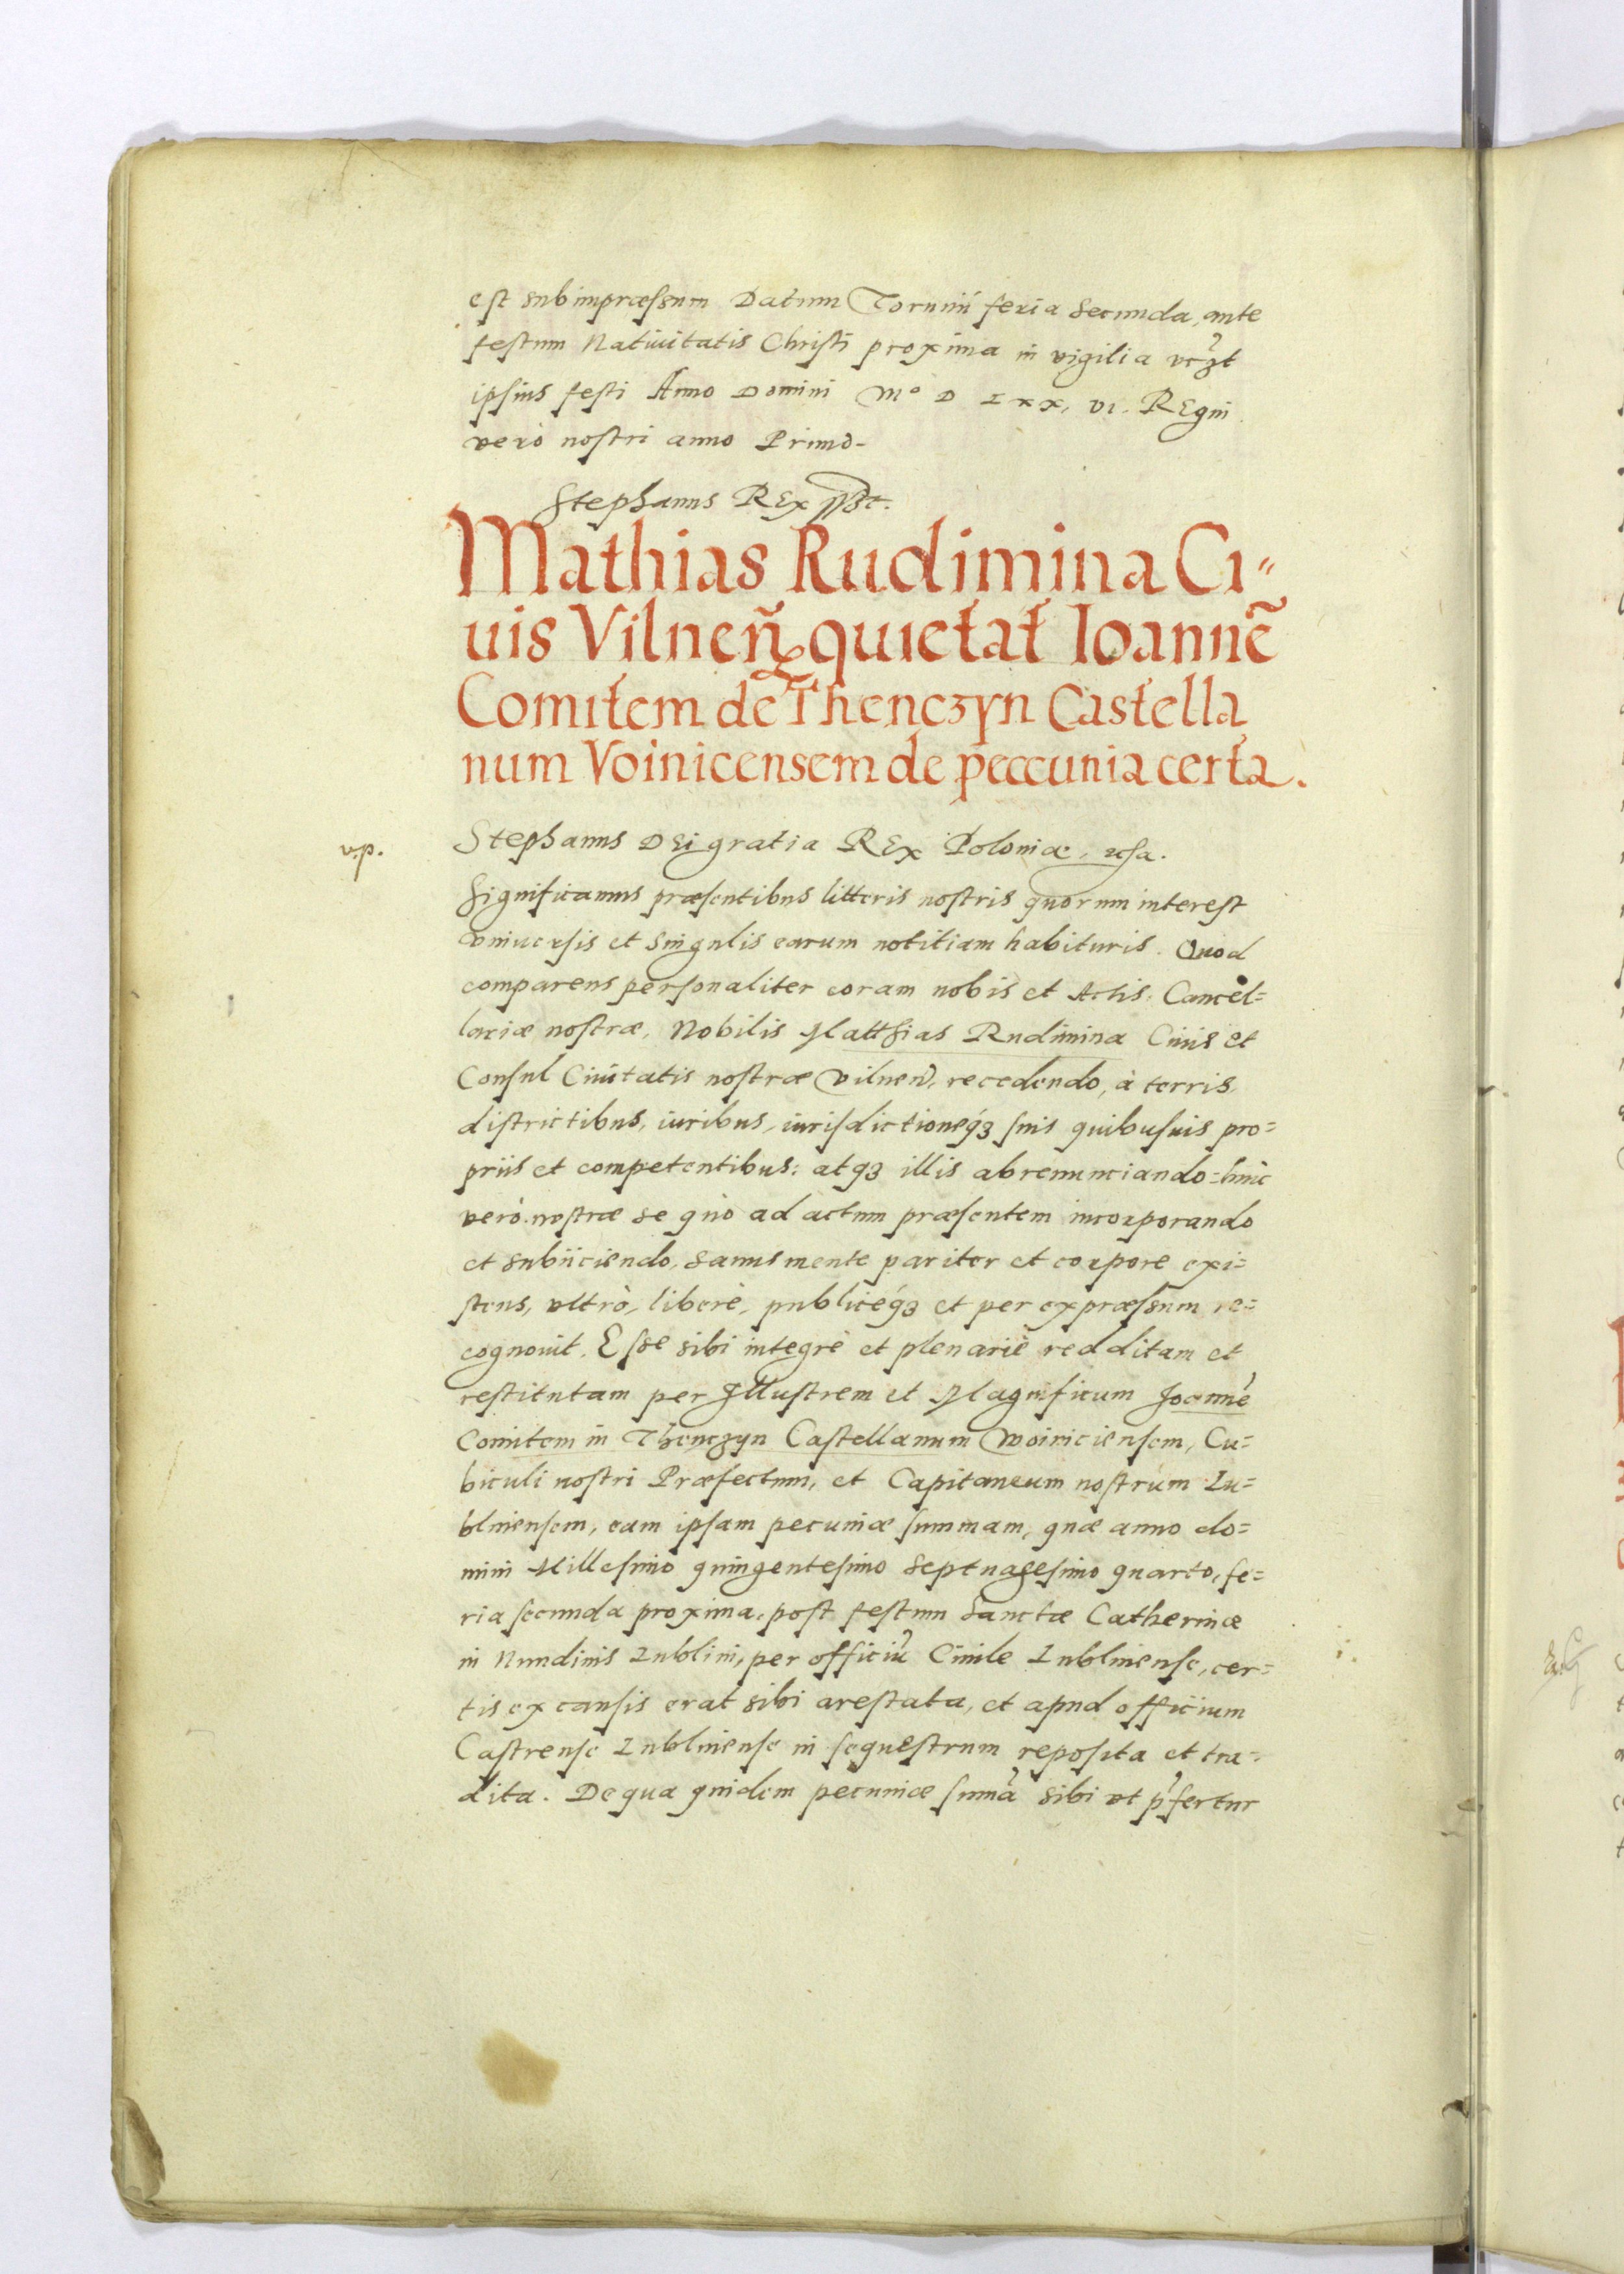 est subimpræssum Datum Torunii feria Secunda, ante
festum Natiuitatis Christi proxima in vigilia vczt
ipsius festi Anno Domini Mº D LXX, VI. REgni
verò nostri anno Primo-
Stephanus REx sst.
Mathias Rudimina Ci=
uis Vilneñ quietat Ioannē
Comitem de Thenczyn Castella
num Voinicensem de peccunia certa.
v.p.
Stephanus DEi gratia REx Poloniæ, etc̃a.
Significamus præsentibus litteris nostris quorum interest
vniuersis et singulis earum notitiam habituris. Quod
comparens personaliter coram nobis et Actis, Cancel=
lariæ nostræ, Nobilis Matthias Rudimina Ciuis et
Consul Ciuitatis nostræ Vilneñ, recedendo, à terris,
districtibus, iuribus, iurisdictioneq́ȝ suis quibusuis pro=
priis et competentibus: atqȝ illis abrenunciando=huic
verò nostræ se quò ad actum præsentem incorporando
et subiiciendo, sanus mente pariter et corpore exi=
stens, vltrò, liberè, publiceq́ȝ et per expræssum re=
cognouit. Esse sibi integrè et plenariè redditam et
restitutam per Illustrem et Magnificum Joannē
Comitem in Thenczyn Castellanum Woiniciensem, Cu=
biculi nostri Præfectum, et Capitaneum nostrum Lu=
blinensem, eam ipsam pecuniæ summam, quæ anno do=
mini Millesimo quingentesimo Septuagesimo quarto, fe=
ria secunda proxima, post festum Sanctæ Catherinæ
in Nundinis Lublini, per officiū Ciuile Lublinense, cer=
tis ex causis erat sibi arestata, et apud officium
Castrense Lublinense in sequestrum reposita et tra=
dita. De qua quidem pecuniæ sumā sibi vt p̄fertur